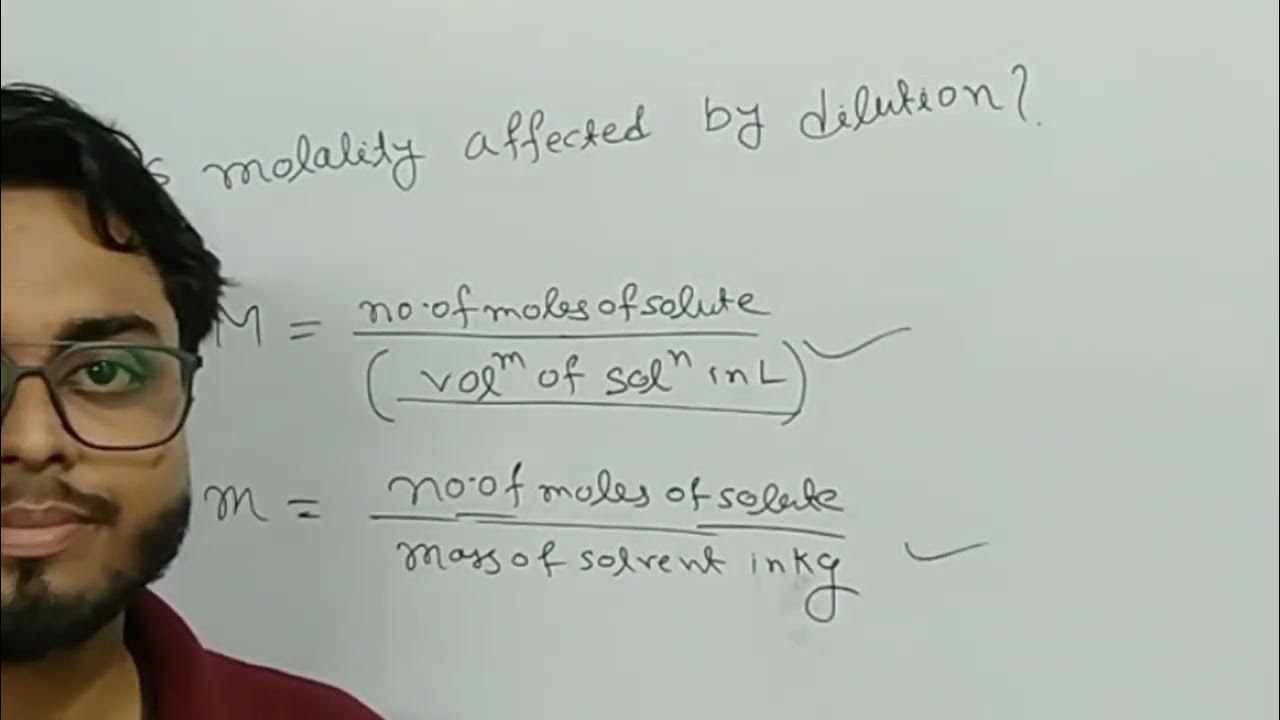 s molality affected by dilution?
M = no. of moles of solute
(volᵐ of solⁿ in L)
m = no. of moles of solute
mass of solvent in kg